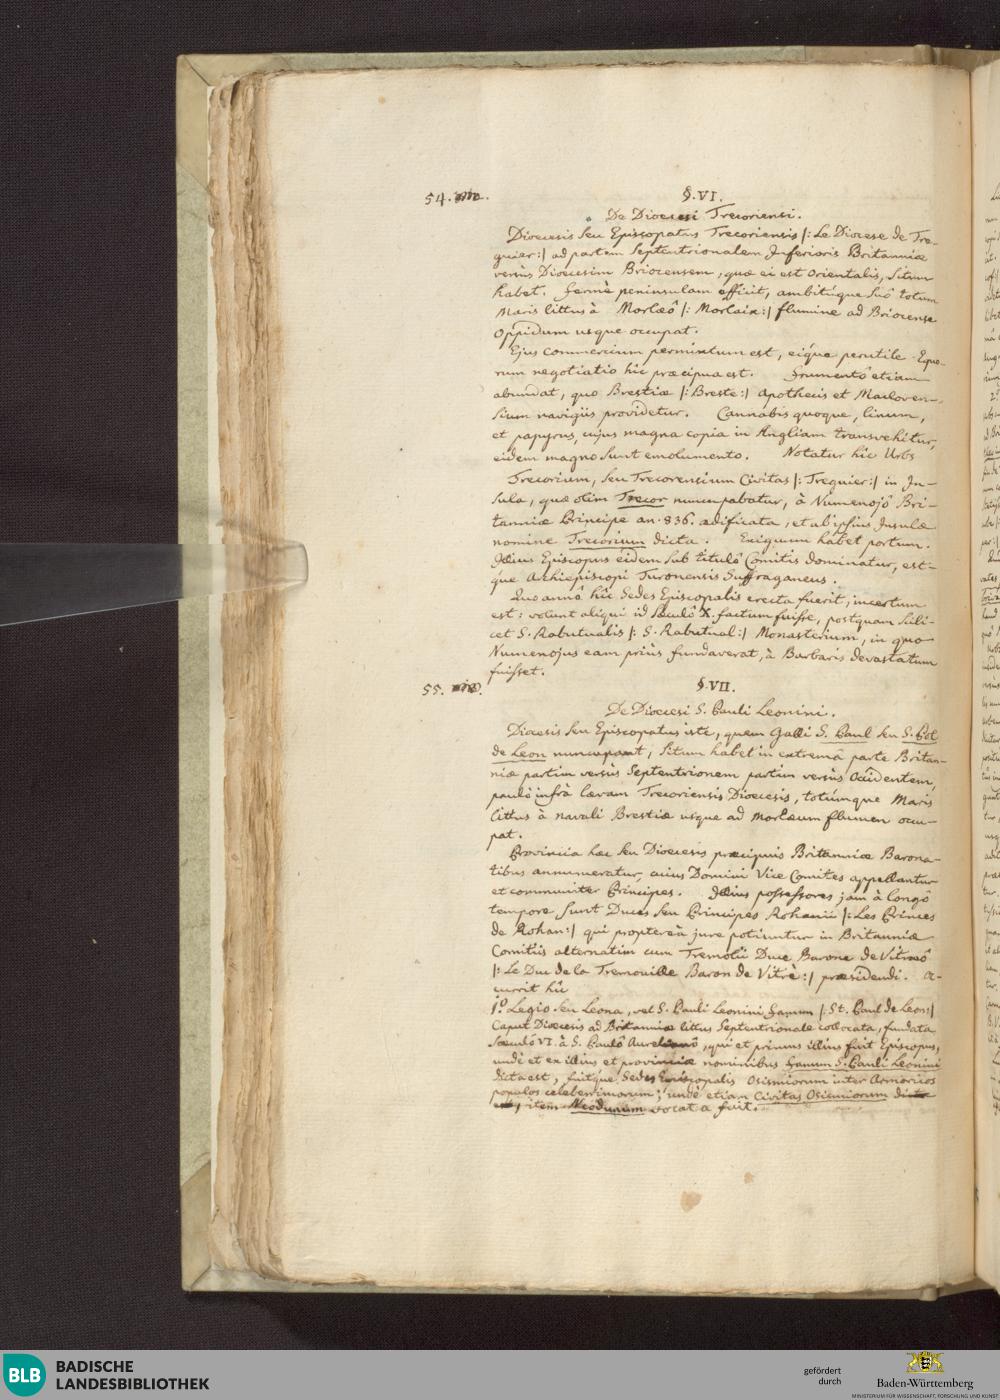 54.
§.VI.
De Dioecesi Trecoriensi.
Dioecesis seu Episcopatus Trecoriensis |: Le Diocese de Tre-
guier:| ad partem Septentrionalem Inferioris Britanniæ
versùs Dioecesim Briocensem, quæ ei est orientalis, situm
habet. fermè peninsulam efficit, ambitúque suô totum
Maris littus à Morlæô |: Morlaix:| flumine ad Briocense
Oppidum usque occupat.
Ejus commercium permixtum est, eíque perutile. Equo-
rum negotiatio hic præcipua est. frumentô etiam
abundat, quo Brestiæ |: Breste:| Apothecis et Macloven-
sium navigiis providetur. Cannabis quoque, linum,
et papyrus, cujus magna copia in Angliam transvehitur,
eidem magno sunt emolumento. Notatur hic Urbs
Trecorium, seu Trecorensium Civitas |: Treguier:| in In-
sula, quæ olim Trecor nuncupabatur, à Numenojô Bri-
tanniæ Principe an. 836. ædificata, et ab ipsius Insulæ
nomine Trecorium dicta. Exiguum habet portum.
Illius Episcopus eidem sub titulô Comitis dominatur, est-
que Archiepiscopi Turonensis Suffraganeus.
Quo annô hic Sedes Episcopalis erecta fuerit, incertum
est: volunt aliqui id sæculô X. factum fuisse, postquam scili-
cet S. Rabutualis |: S. Rabutual:| Monasterium, in quo
Numenojus eam priùs fundaverat, à Barbaris devastatum
fuisset.
55.
§.VII.
De Dioecesi S. Pauli Leonini.
Dioecesis seu Episcopatus iste, quem Galli S. Paul seu S. Pol
de Leon nuncupant, situm habet in extremâ parte Britan-
niæ partim versùs Septentrionem partim versùs Occidentem,
paulò infrà lævam Trecoriensis Dioecesis, totúmque Maris
littus à navali Brestiæ usque ad Morlæum flumen occu-
pat.
Provincia hæc seu Dioecesis præcipuis Britanniæ Barona-
tibus annumeratur, cuius Domini Vice Comites appellantur
et communiter Principes. Illius possessores jam à longô
tempore sunt Duces seu Principes Rohanii |: Les Princes
de Rohan:| qui proptereà jure potiuntur in Britanniæ
Comitiis alternatim cum Tremolii Duce Barone de Vitræô
|: Le Duc de la Tremouille Baron de Vitrè:| præsidendi. Oc-
currit hic
1º. Legio seu Leona, vel S. Pauli Leonini fanum |: St. Paul de Leon:|
Caput Dioecesis ad Britanniæ littus Septentrionale collocata, fundata
Sæculô VI. à S. Paulô Aurelianô, qui et primus illius fuit Episcopus,
undè et ex illius et provinciæ nominibus fanum S. Pauli Leonini
dicta est, fuitque Sedes Episcopalis Osismiorum inter Armoricos
populos celeberrimorum; undè etiam Civitas Osismiorum dicta
item Neodunum vocata fuit.
BLB
BADISCHE
LANDESBIBLIOTHEK
gefördert
durch
Baden-Württemberg
MINISTERIUM FÜR WISSENSCHAFT, FORSCHUNG UND KUNST